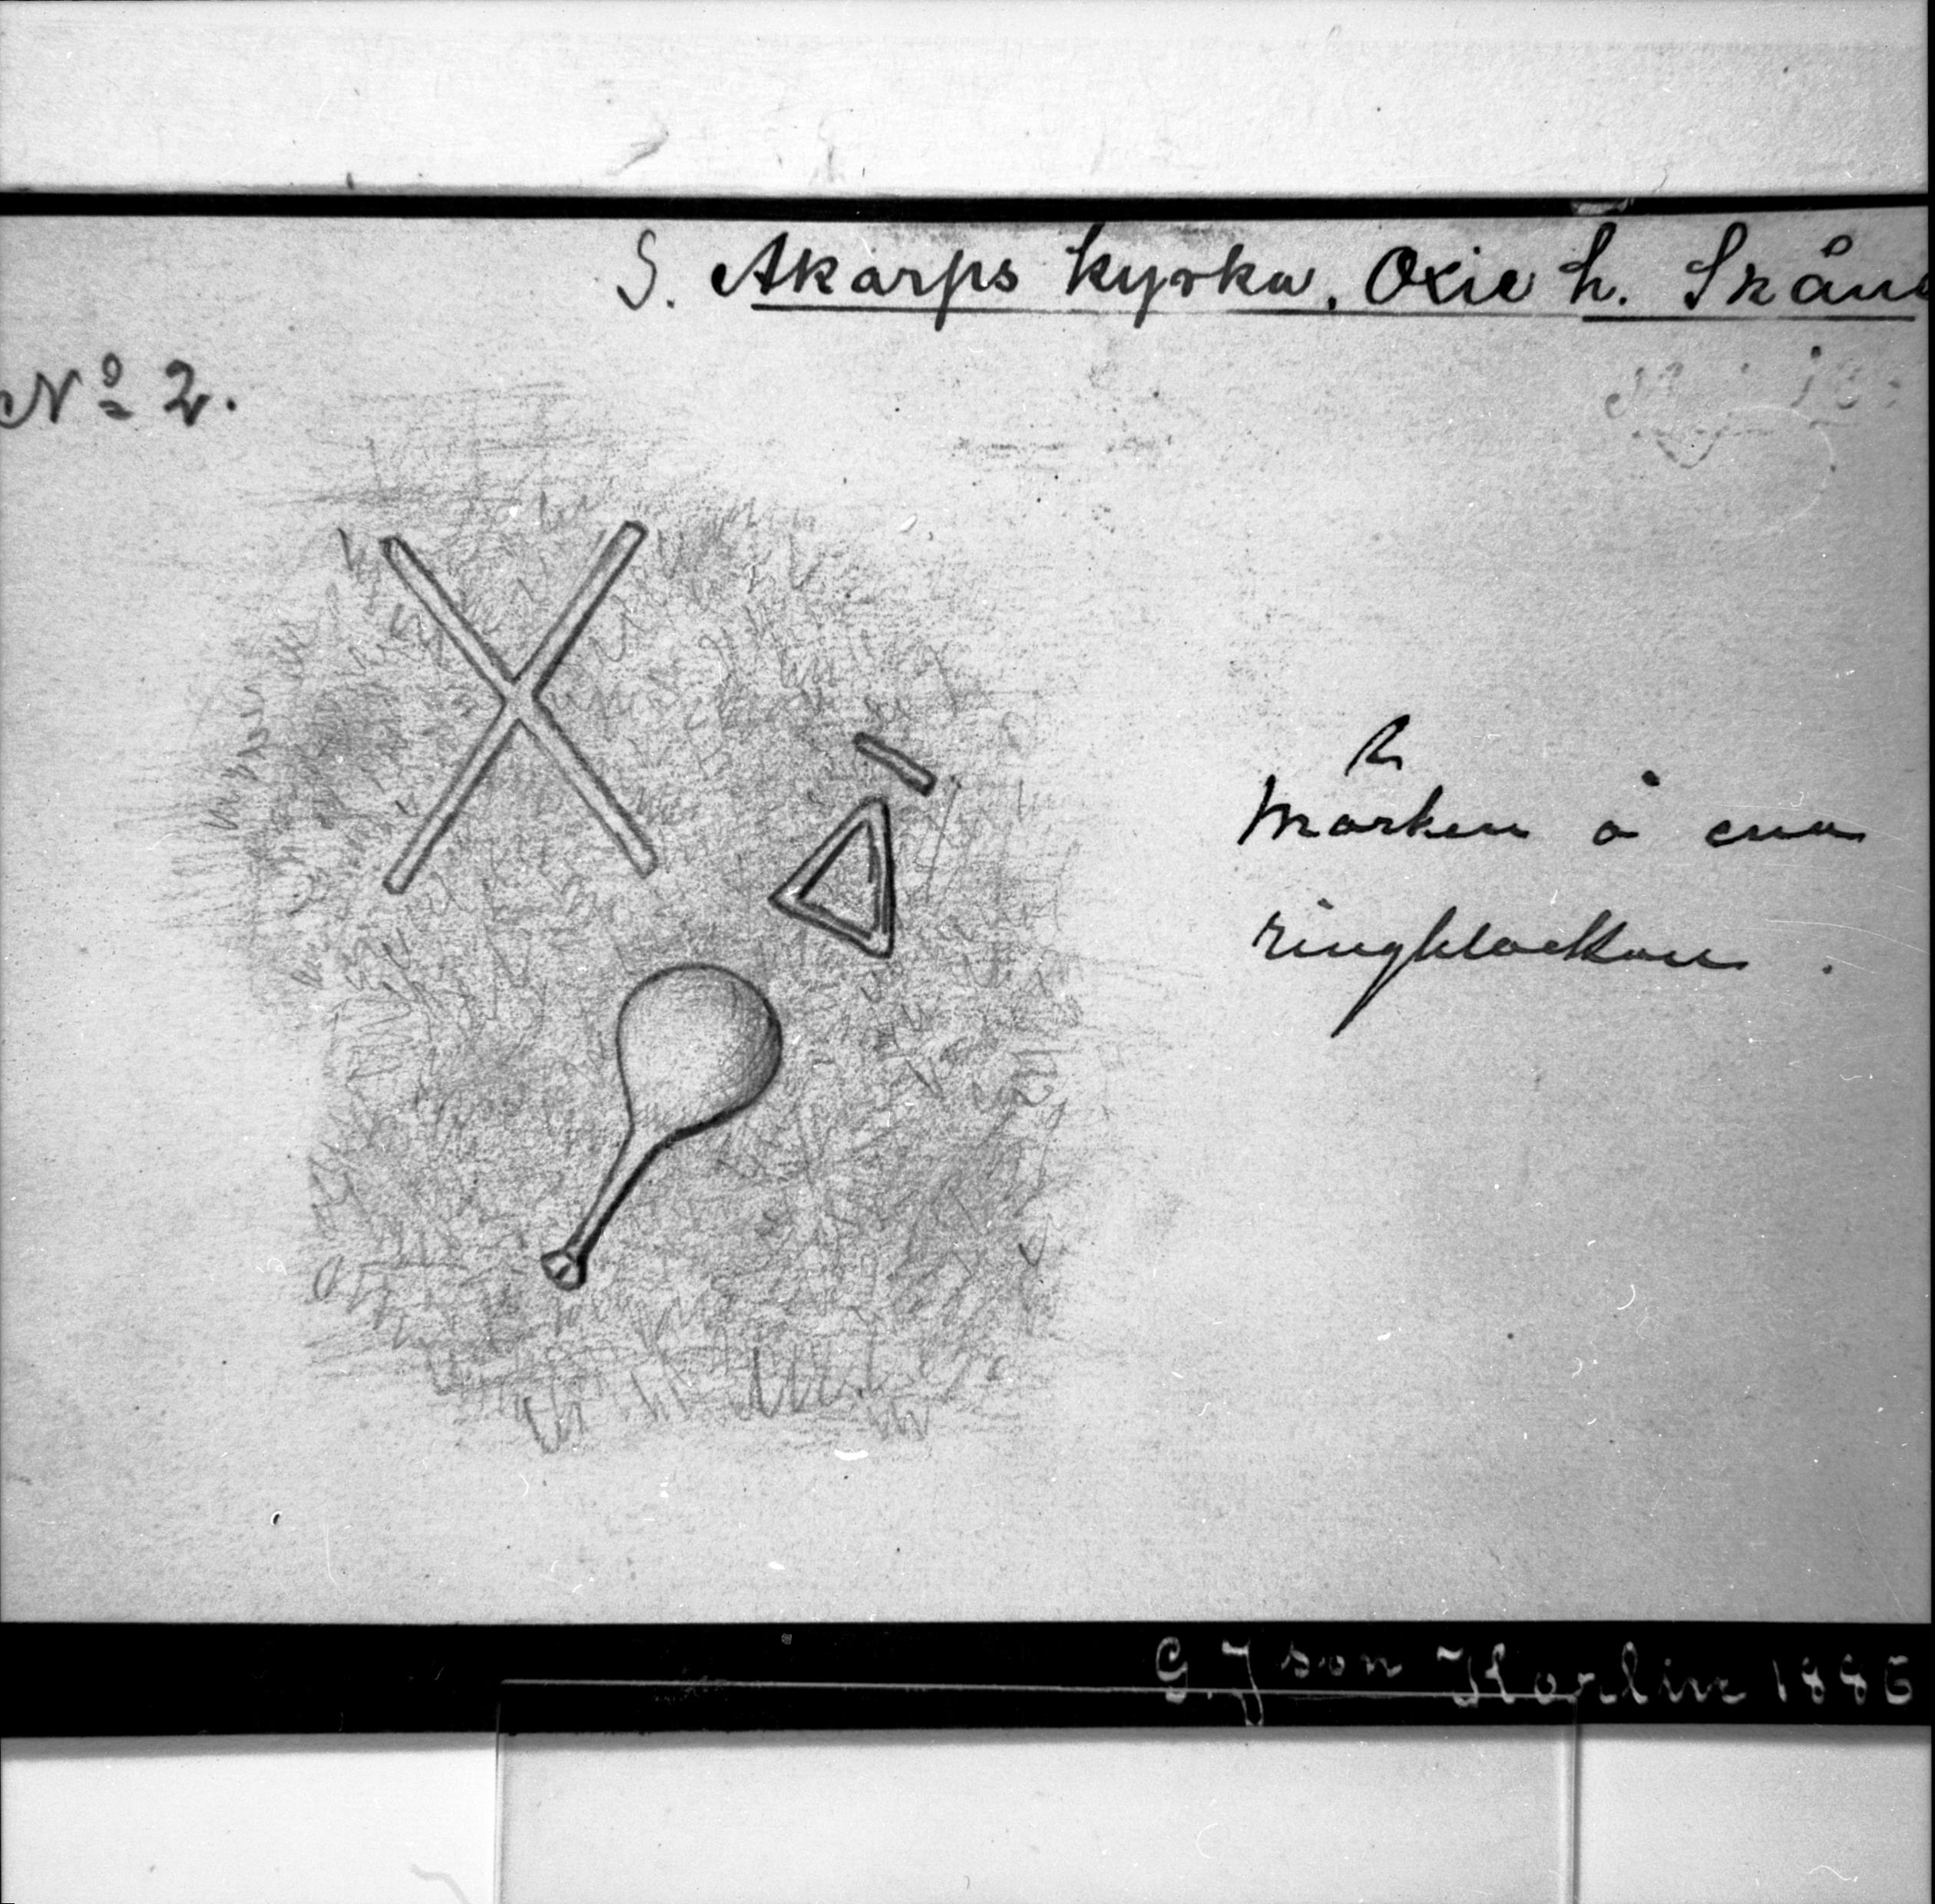 S. Åkarps kyrka. Oxie h. Skåne
No 2.
Märken å ena
ringklockan.
G. Json Karlin 1886